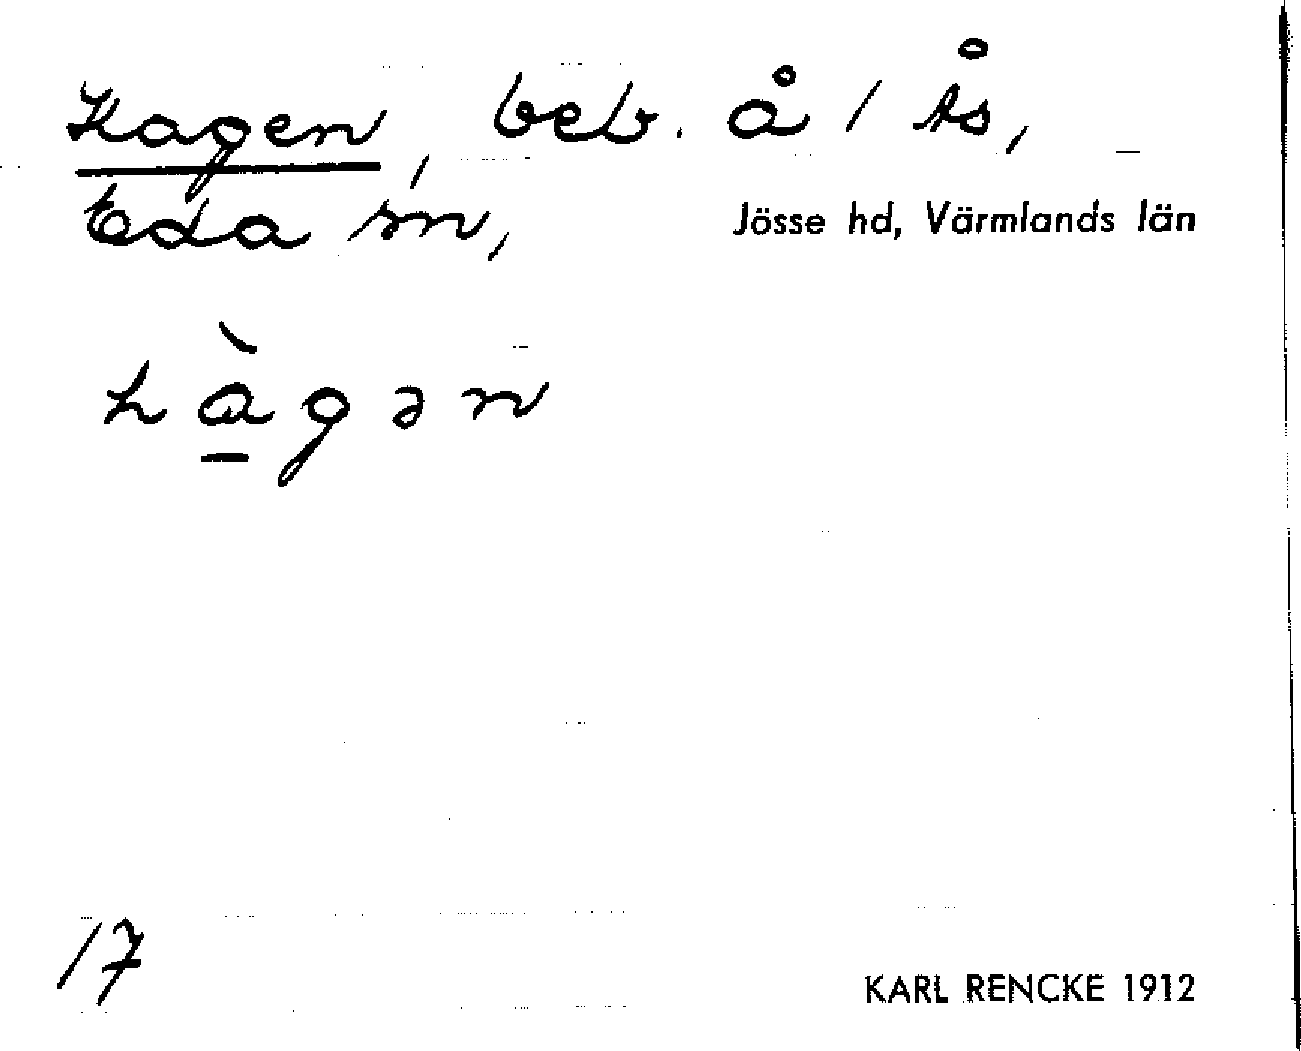 Hagen, beb. å 1 Ås,
Eda sn,
Jösse hd, Värmlands län
hàgən
17
KARL RENCKE 1912